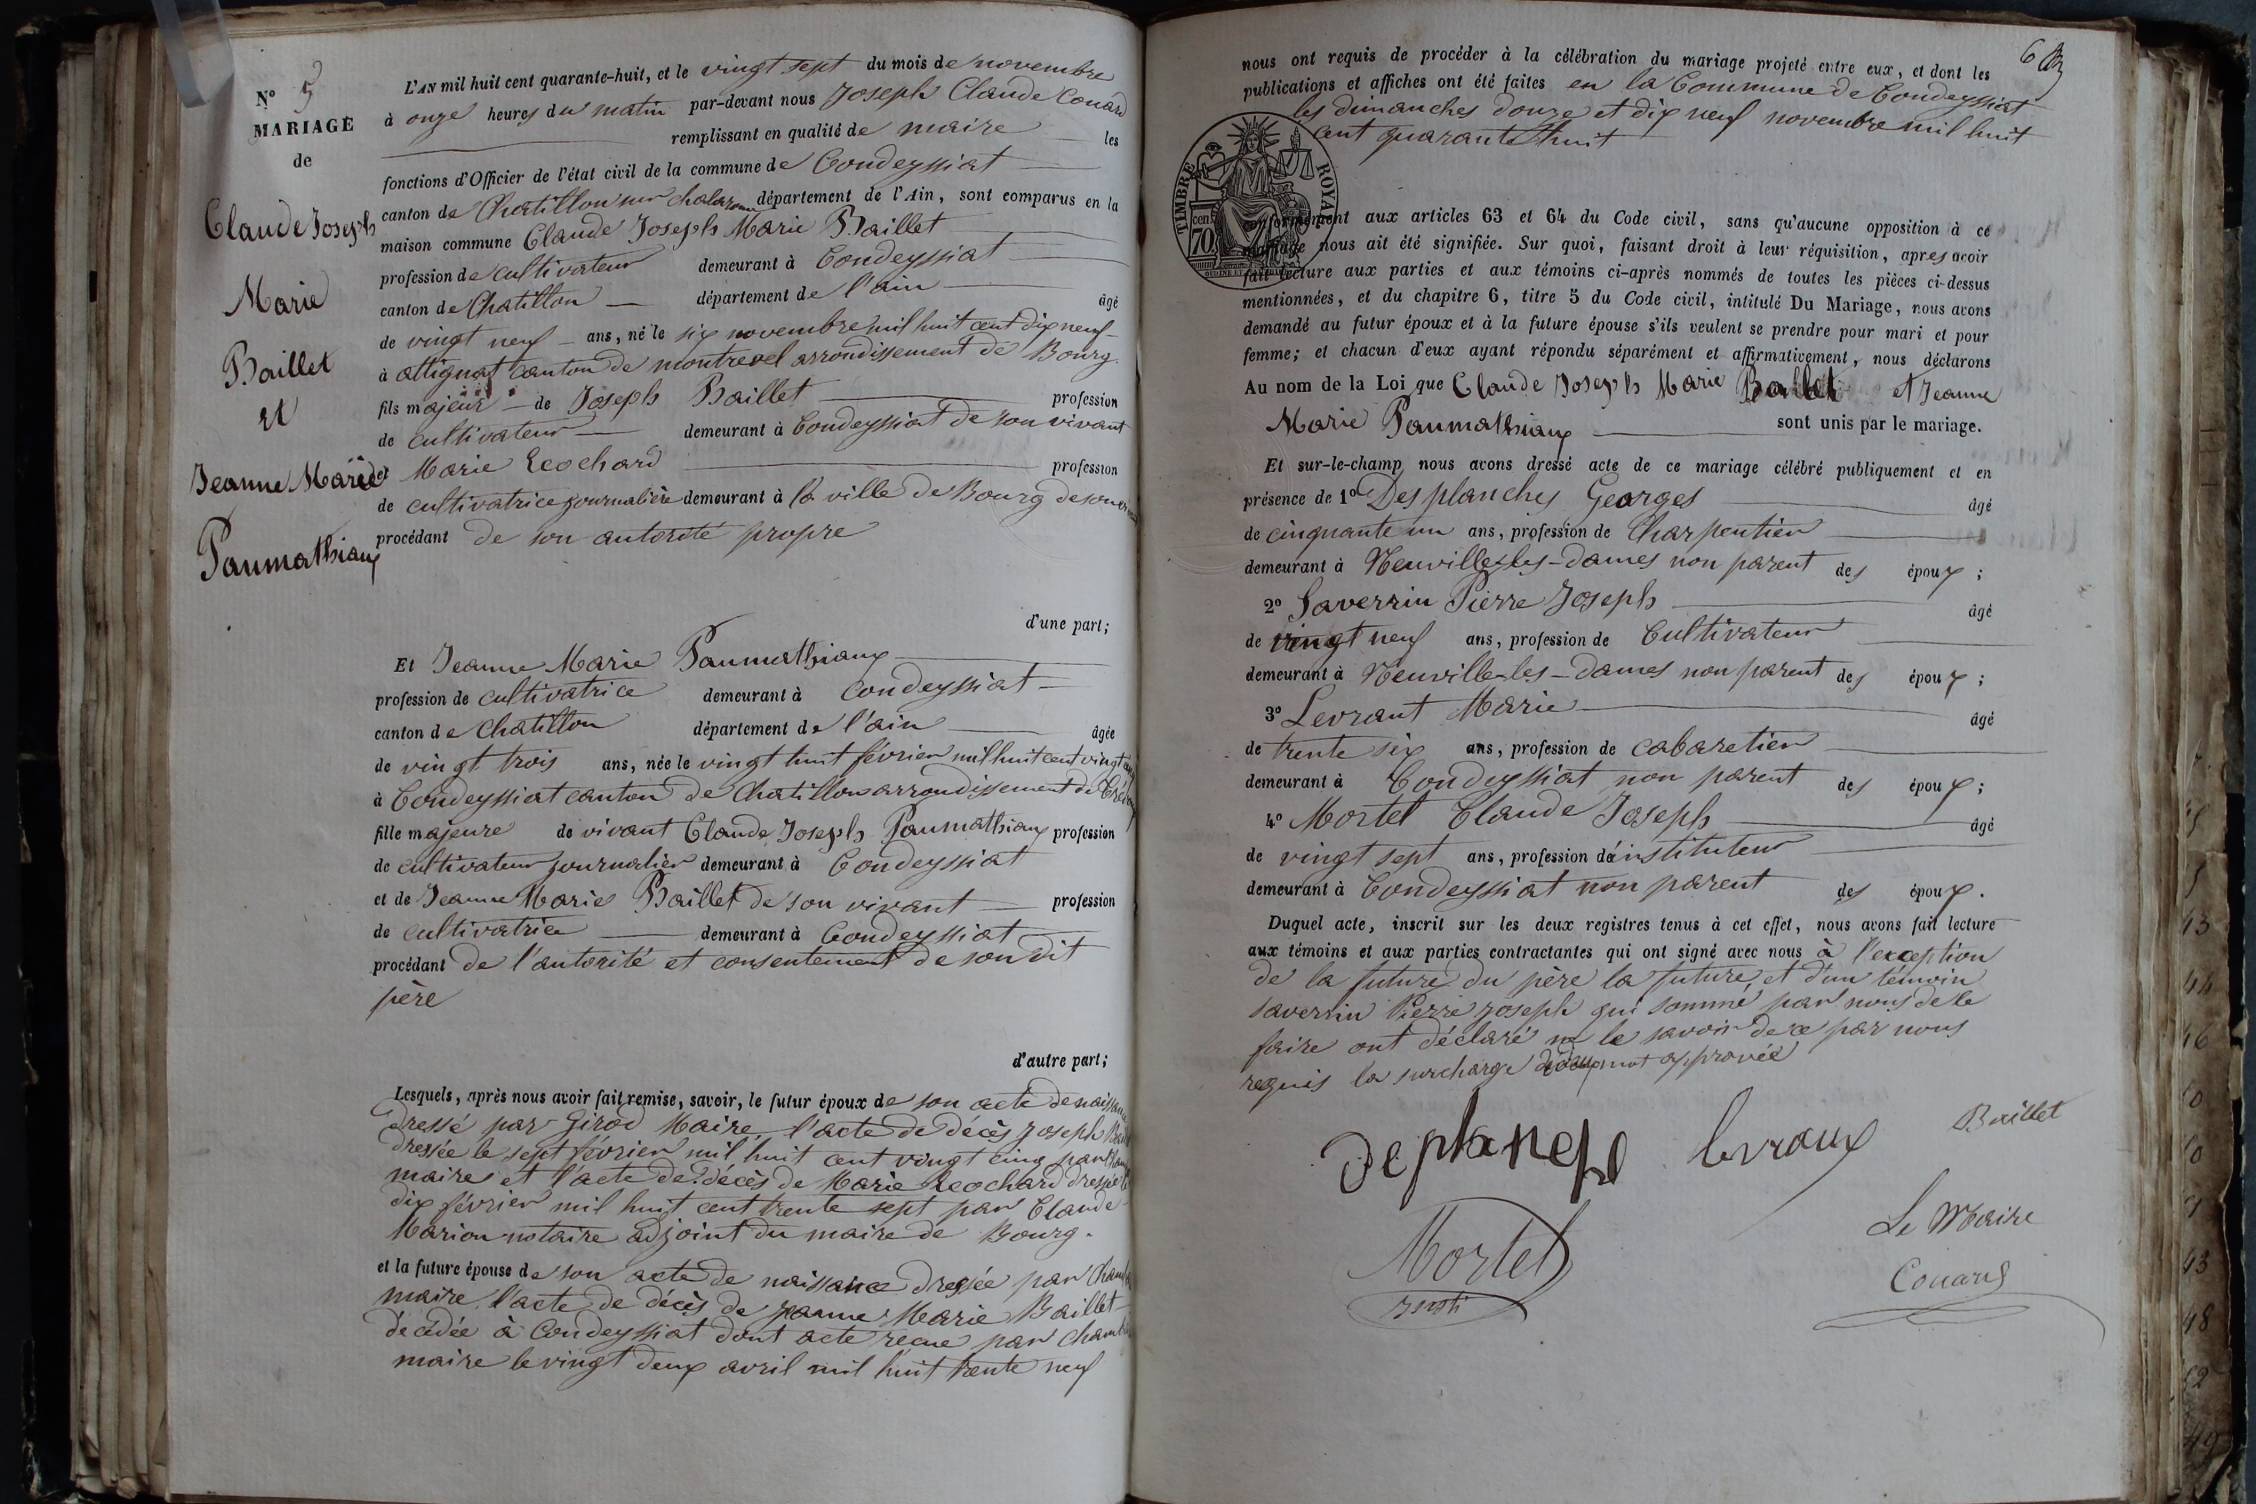 N° 5
MARIAGE
de
Claude Joseph
Marie
Baillet
et
Jeanne Marie
Paumathiaux
L'AN mil huit cent quarante-huit, et le vingt sept du mois de novembre
à onze heures du matin par-devant nous Joseph Claude Couard
remplissant en qualité de maire les
fonctions d'Officier de l'état civil de la commune de Condeyssiat
canton de Chatillon sur chalaronne département de l'Ain, sont comparus en la
maison commune Claude Joseph Marie Baillet
profession de cultivateur demeurant à Condeyssiat
canton de Chatillon département de l'ain âgé
de vingt neuf ans, né le six novembre mil huit cent dix neuf
à attignat canton de montrevel arrondissement de Bourg
fils majeur de Joseph Baillet profession
de cultivateur demeurant à Condeyssiat de son vivant
et Marie Leochard profession
de cultivatrice journalière demeurant à la ville de Bourg de son
procédant de son autorité propre
d'une part;
Et Jeanne Marie Paumathiaux
profession de cultivatrice demeurant à Condeyssiat
canton de Chatillon département de l'ain âgée
de vingt trois ans, née le vingt huit février mil huit cent vingt
à Condeyssiat canton de Chatillon arrondissement de
fille majeure de vivant Claude Joseph Paumathiaux profession
de cultivateur journalier demeurant à Condeyssiat
et de Jeanne Marie Baillet de son vivant profession
de cultivatrice demeurant à Condeyssiat
procédant de l'autorité et consentement de son dit
père
d'autre part;
Lesquels, après nous avoir fait remise, savoir, le futur époux de son acte de
dressé par Girod Maire l'acte de décès Joseph
dressée le sept février mil huit cent vingt cinq par
maire et l'acte de décès de Marie Leochard dressée
dix février mil huit cent trente sept par Claude
Marion notaire adjoint du maire de Bourg.
et la future épouse de son acte de naissance dressée par
maire l'acte de décès de Jeanne Marie Baillet
décédée à Condeyssiat dont acte reçue par
maire le vingt deux avril mil huit trente neuf
6
nous ont requis de procéder à la célébration du mariage projeté entre eux, et dont les
publications et affiches ont été faites en la Commune de Condeyssiat
les dimanches douze et dix neuf novembre mil huit
cent quarante huit
TIMBRE ROYAL
70
conformément aux articles 63 et 64 du Code civil, sans qu'aucune opposition à ce
mariage nous ait été signifiée. Sur quoi, faisant droit à leur réquisition, apres avoir
fait lecture aux parties et aux témoins ci-après nommés de toutes les pièces ci-dessus
mentionnées, et du chapitre 6, titre 5 du Code civil, intitulé Du Mariage, nous avons
demandé au futur époux et à la future épouse s'ils veulent se prendre pour mari et pour
femme; et chacun d'eux ayant répondu séparément et affirmativement, nous déclarons
Au nom de la Loi que Claude Joseph Marie Baillet et Jeanne
Marie Paumathiaux sont unis par le mariage.
Et sur-le-champ nous avons dressé acte de ce mariage célébré publiquement et en
présence de 1° Desplanches Georges âgé
de cinquante un ans, profession de Charpentier
demeurant à Neuville les-Dames non parent des époux;
2° Saverrin Pierre Joseph âgé
de vingt neuf ans, profession de Cultivateur
demeurant à Neuville les-Dames non parent des époux;
3° Levrant Marie âgé
de trente six ans, profession de cabaretier
demeurant à Condeyssiat non parent des époux;
4° Mortel Claude Joseph âgé
de vingt sept ans, profession d'instituteur
demeurant à Condeyssiat non parent des époux.
Duquel acte, inscrit sur les deux registres tenus à cet effet, nous avons fait lecture
aux témoins et aux parties contractantes qui ont signé avec nous à l'exception
de la future du père la future, et d'un témoin
saverrin Pierre joseph qui sommé par nous de le
faire ont déclaré ne le savoir de ce par nous
requis la surcharge mot approvée
Baillet
Mortel
Le Maire
Couard